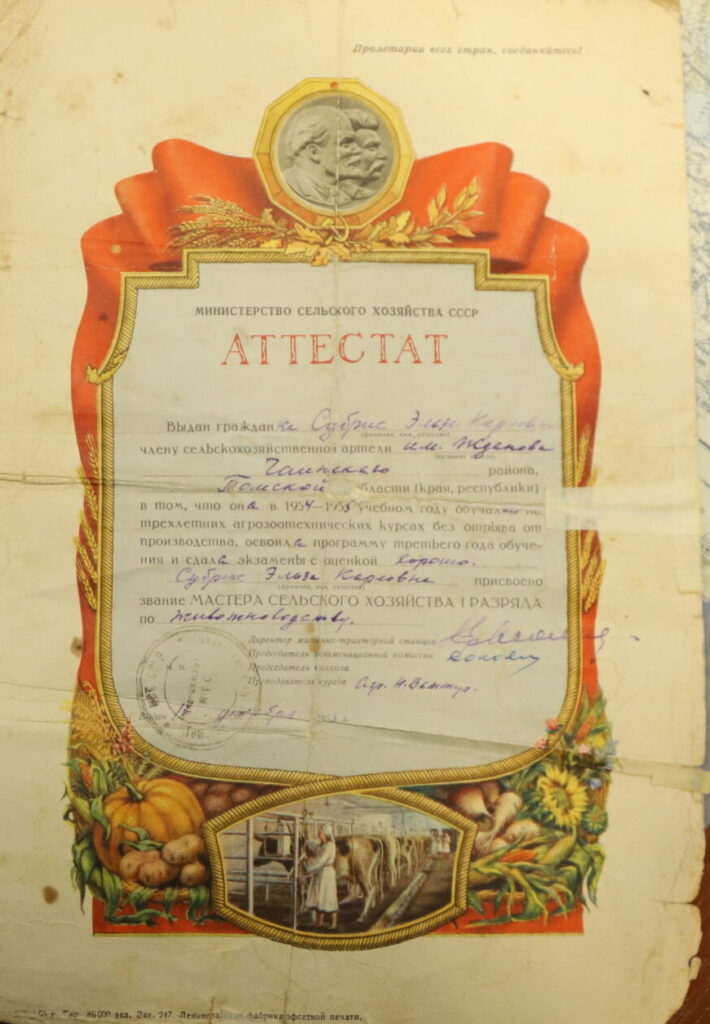 Пролетарии всех стран, соединяйтесь!
МИНИСТЕРСТВО СЕЛЬСКОГО ХОЗЯЙСТВА СССР
АТТЕСТАТ
Выдан гражданке Субрис Эльзе Карловне
(фамилия, имя, отчество)
члену сельскохозяйственной артели им. Жданова
Чаинского района,
Томской области (края, республики)
в том, что она в 1954–1955 учебном году обучалась по
трехлетних агрозоотехнических курсах без отрыва от
производства, освоила программу третьего года обуче-
ния и сдала экзамены с оценкой хорошо.
Субрис Эльза Карловна присвоено
(фамилия, имя, отчество)
звание МАСТЕРА СЕЛЬСКОГО ХОЗЯЙСТВА I РАЗРЯДА
по животноводству.
Директор машинно-тракторной станции
Председатель экзаменационной комиссии
Председатель колхоза
Преподаватель курсов
М. П.
МТС
Выдан
Тир. 86000 экз. Зак. 247. Ленинградская фабрика офсетной печати.